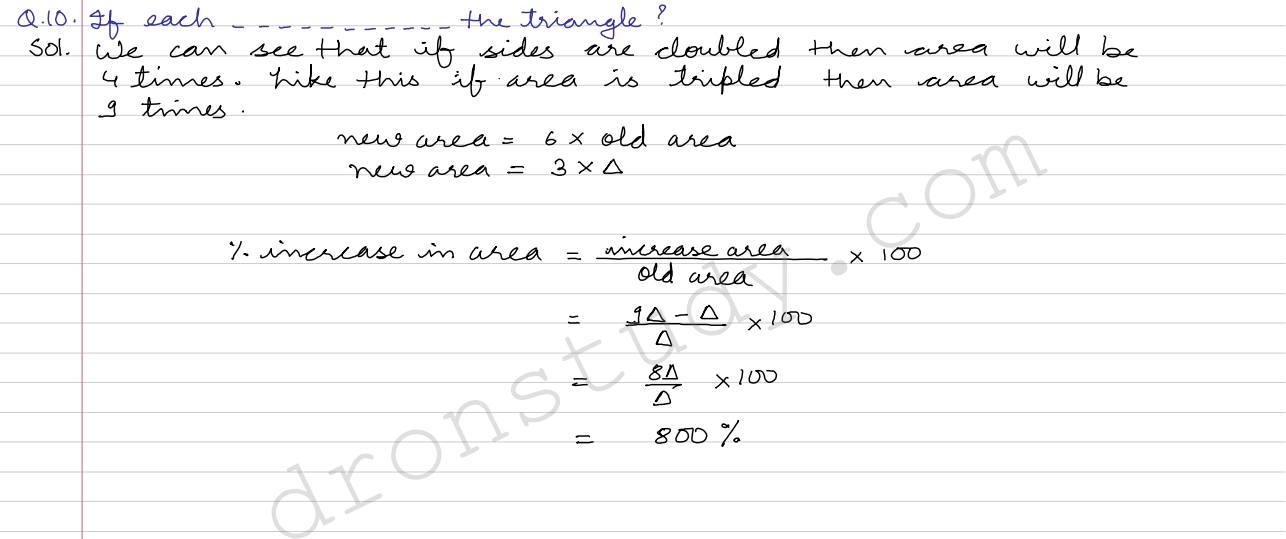 Q.10. If each ____________ the triangle?
Sol. We can see that if sides are doubled then area will be
4 times. Like this if area is tripled then area will be
9 times.
new area = 6 × old area
new area = 3 × Δ
% increase in area = increase area / old area × 100
= 9Δ - Δ / Δ × 100
= 8Δ / Δ × 100
= 800 %
dronstudy.com